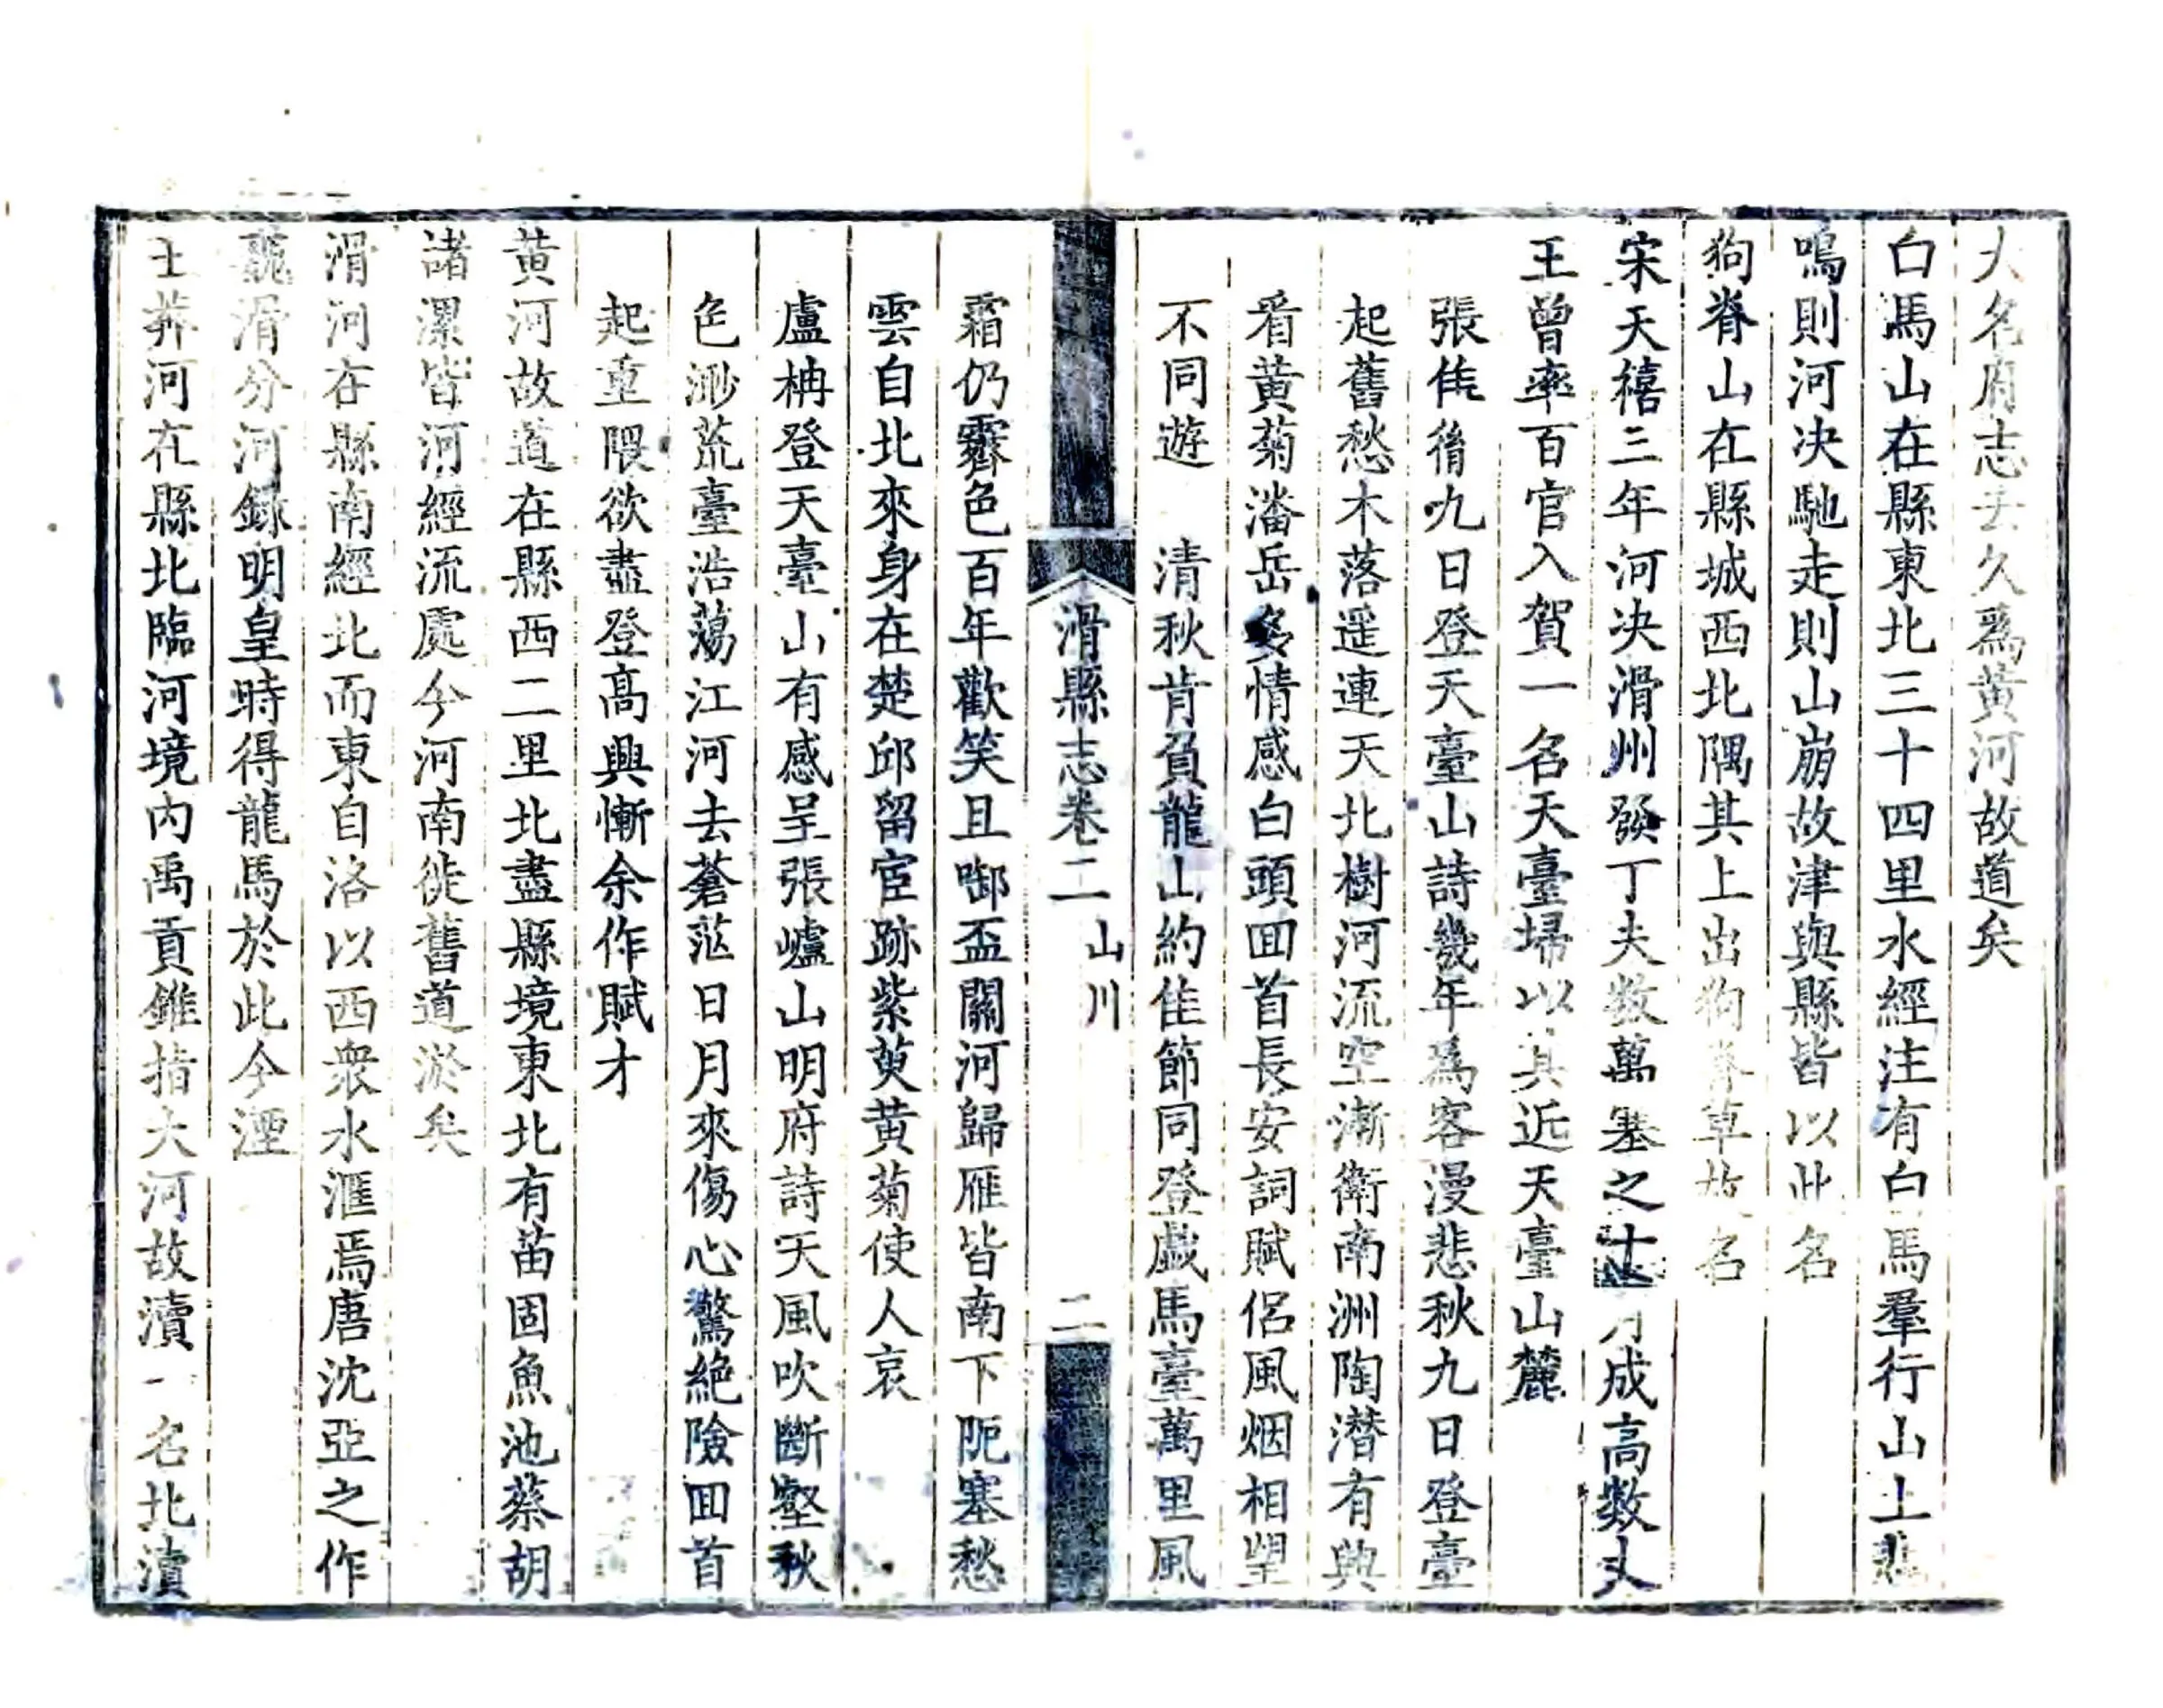 大名府志云久為黃河故道矣
白馬山在縣東北三十四里水經注有白馬羣行山上悲
鳴則河决馳走則山崩故津與縣皆以此名
狗脊山在縣城西北隅其上出狗脊草故名
宋天禧三年河决滑州發丁夫数萬塞之十月成高数丈
王曾率百官入賀一名天臺埽以其近天臺山麓
張佳後九日登天臺山詩幾年為客漫悲秋九日登臺
起舊愁木落遥連天北樹河流空漸衛南洲陶潜有興
看黃菊潘岳多情感白頭囬首長安詞賦侶風烟相望
不同遊　清秋肯負龍山約佳節同登戯馬臺萬里風
滑縣志卷二　山川　二
霜仍霽色百年歡笑且啣盃關河歸雁皆南下阨塞愁
雲自北來身在楚邱留宦跡紫萸黄菊使人哀
盧柟登天臺山有感呈張嶟山明府詩天風吹斷壑秋
色渺荒臺浩蕩江河去蒼茫日月來傷心驚絶險囬首
起重隈欲盡登高興慚余作賦才
黄河故道在縣西二里北盡縣境東北有苗固魚池蔡胡
諸潔皆河經流處今河南徙舊道淤矣
滑河在縣南經北而東自洛以西衆水滙焉唐沈亞之作
魏滑分河錄明皇時得龍馬於此今湮
士莽河在縣北臨河境内禹貢錐指大河故瀆一名北瀆